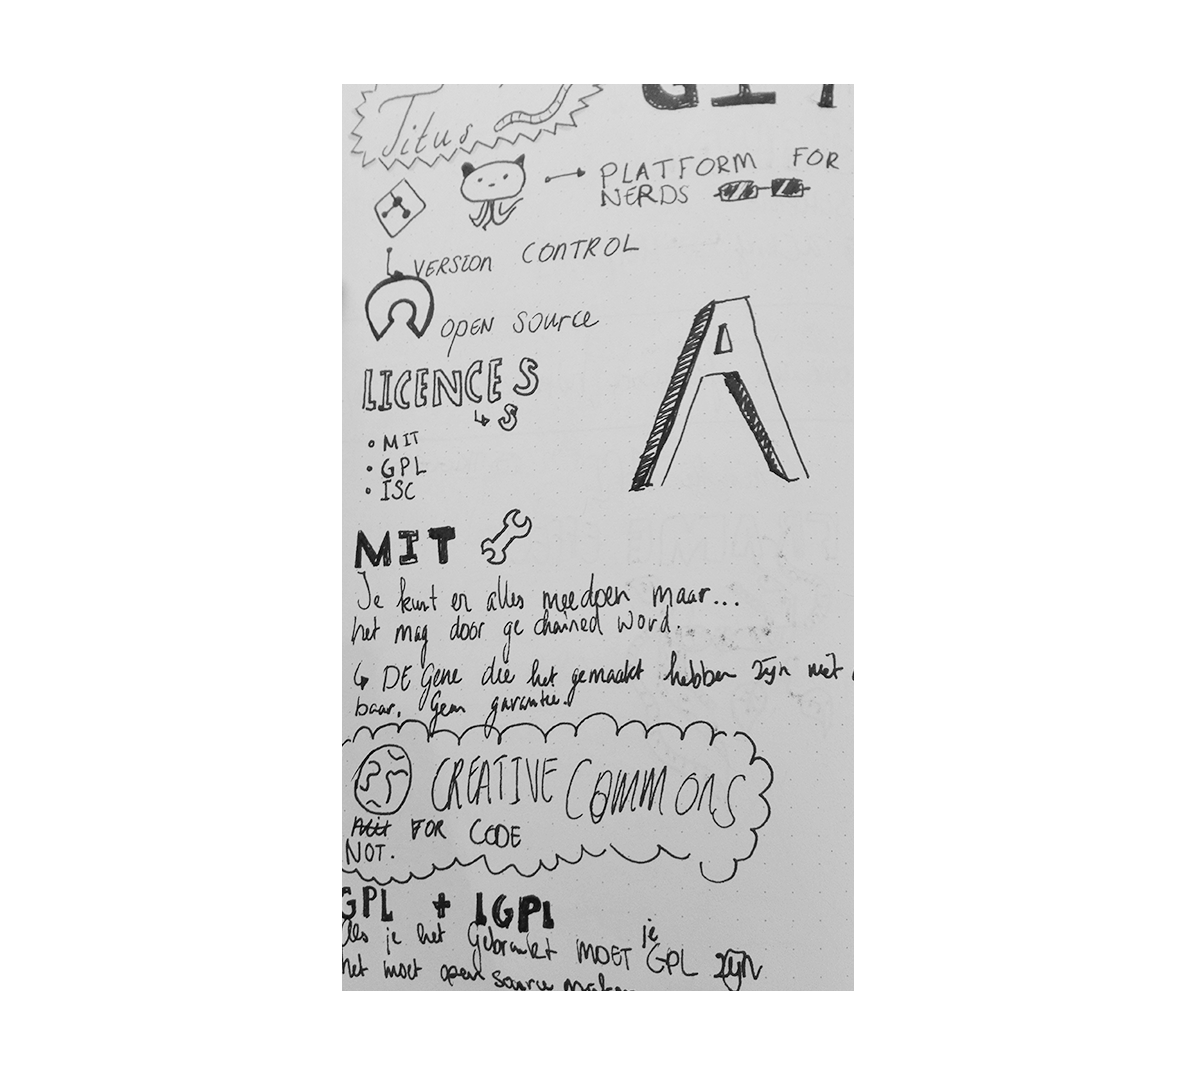 Titus
GIT
PLATFORM FOR
NERDS
VERSION CONTROL
OPEN SOURCE
LICENCES
↳ S
• MIT
• GPL
• ISC
MIT
Je kunt er alles meedoen maar...
het mag door ge chained word.
↳ DE Gene die het gemaakt hebben zijn niet
baar. Geen garantie.
CREATIVE COMMONS
FOR CODE
NOT.
GPL + LGPL
Als je het Gebruikt MOET je GPL zijn
het moet open source maken